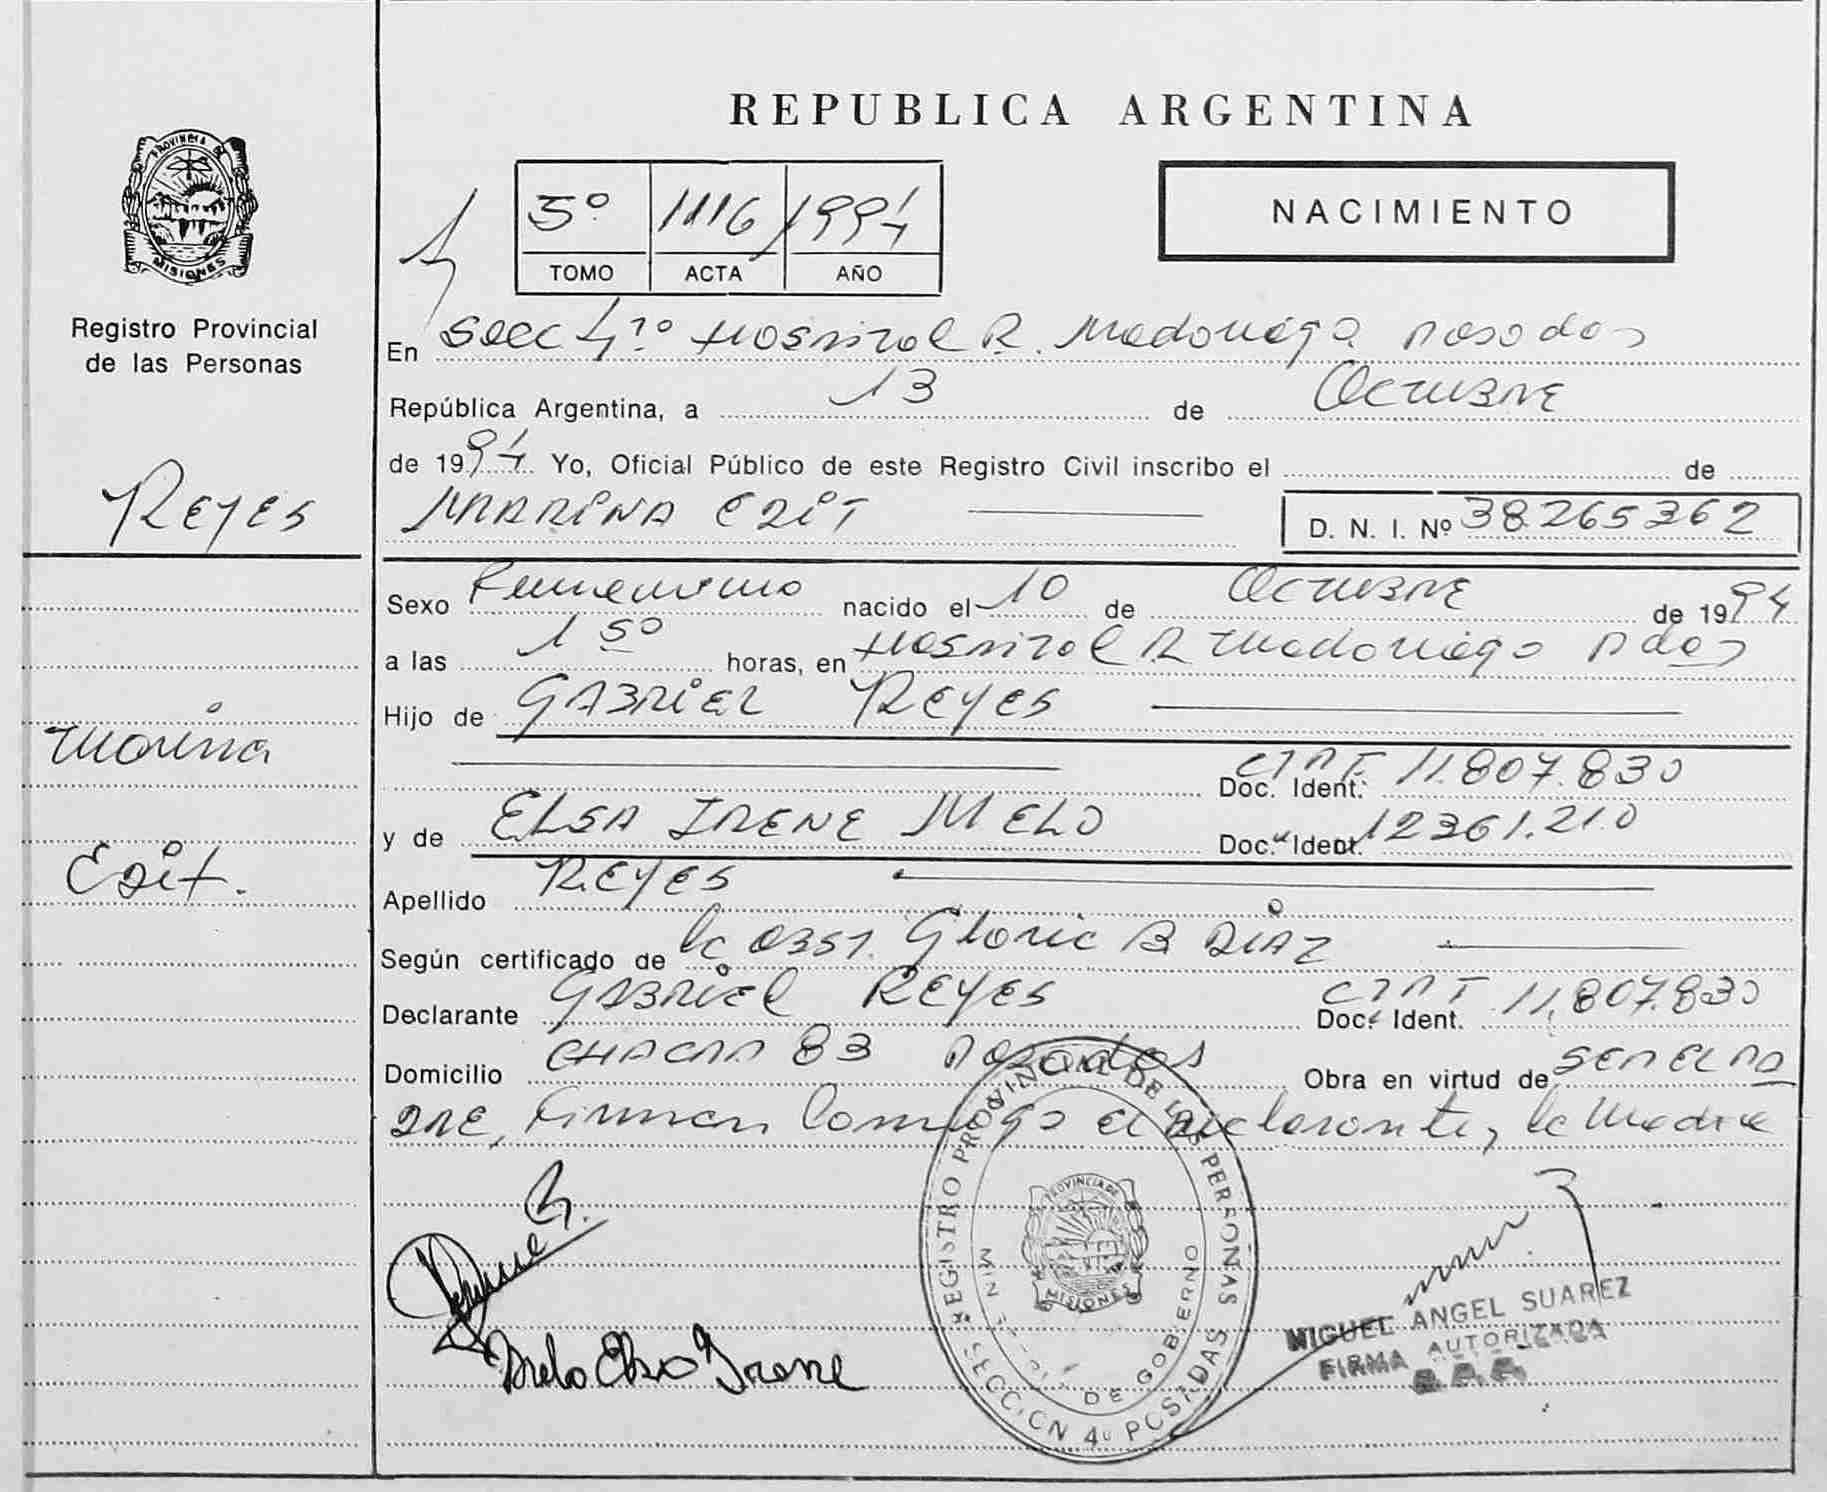 REPUBLICA ARGENTINA
PROVINCIA DE
MISIONES
Registro Provincial
de las Personas
5º 1116 1994
TOMO ACTA AÑO
NACIMIENTO
En Secc 4ta Hospital R. Madariaga Posadas
República Argentina, a 13 de Octubre
de 1994 Yo, Oficial Público de este Registro Civil inscribo el de
Reyes
MARINA EDIT D. N. I. Nº 38.265.362
Sexo Femenino nacido el 10 de Octubre de 1994
a las 1 50 horas, en Hospital R Madariaga Pdas
Hijo de GABRIEL REYES
Marina
Doc. Ident. 11.807.830
y de ELSA IRENE MELO Doc. Ident. 12361.210
Edit.
Apellido REYES
Según certificado de la Obst. Gloria B DIAZ
Declarante GABRIEL REYES Doc. Ident. 11.807.830
Domicilio CHACRA 83 Posadas Obra en virtud de SER EL PA
DRE, Firman Conmigo el declarante, la Madre
Melo Elsa Irene
REGISTRO PROVINCIAL DE LAS PERSONAS
SECCION 4º POSADAS
DE GOBIERNO
PROVINCIA DE
MISIONES
MIGUEL ANGEL SUAREZ
FIRMA AUTORIZADA